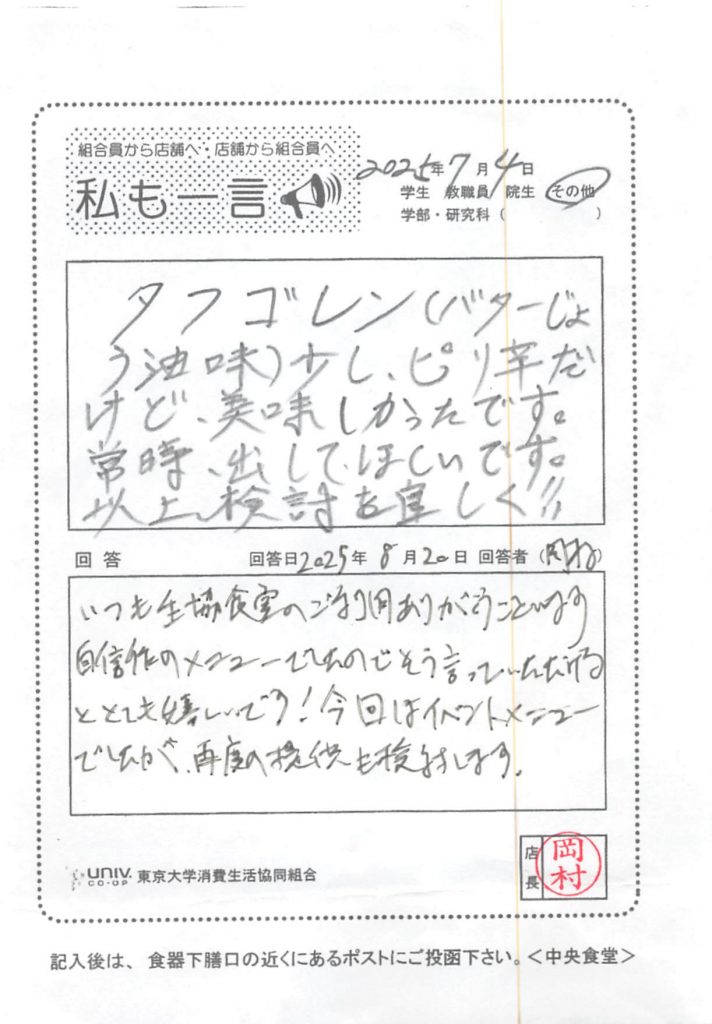 組合員から店舗へ・店舗から組合員へ
私も一言
2025年7月4日
学生 教職員 院生 その他
学部・研究科( )
タフゴレン(バターじょ
う油味)少し、ピリ辛だ
けど、美味しかったです。
常時、出して、ほしいです。
以上、検討を宜しく!!
回答 回答日2025年8月20日 回答者(岡村)
いつも生協食堂のご利用ありがとうございます
自信作のメニューでしたのでそう言っていただける
ととても嬉しいです!今回はイベントメニュー
でしたが、再度の提供も検討します。
UNIV. CO-OP 東京大学消費生活協同組合
店長 岡村
記入後は、食器下膳口の近くにあるポストにご投函下さい。<中央食堂>